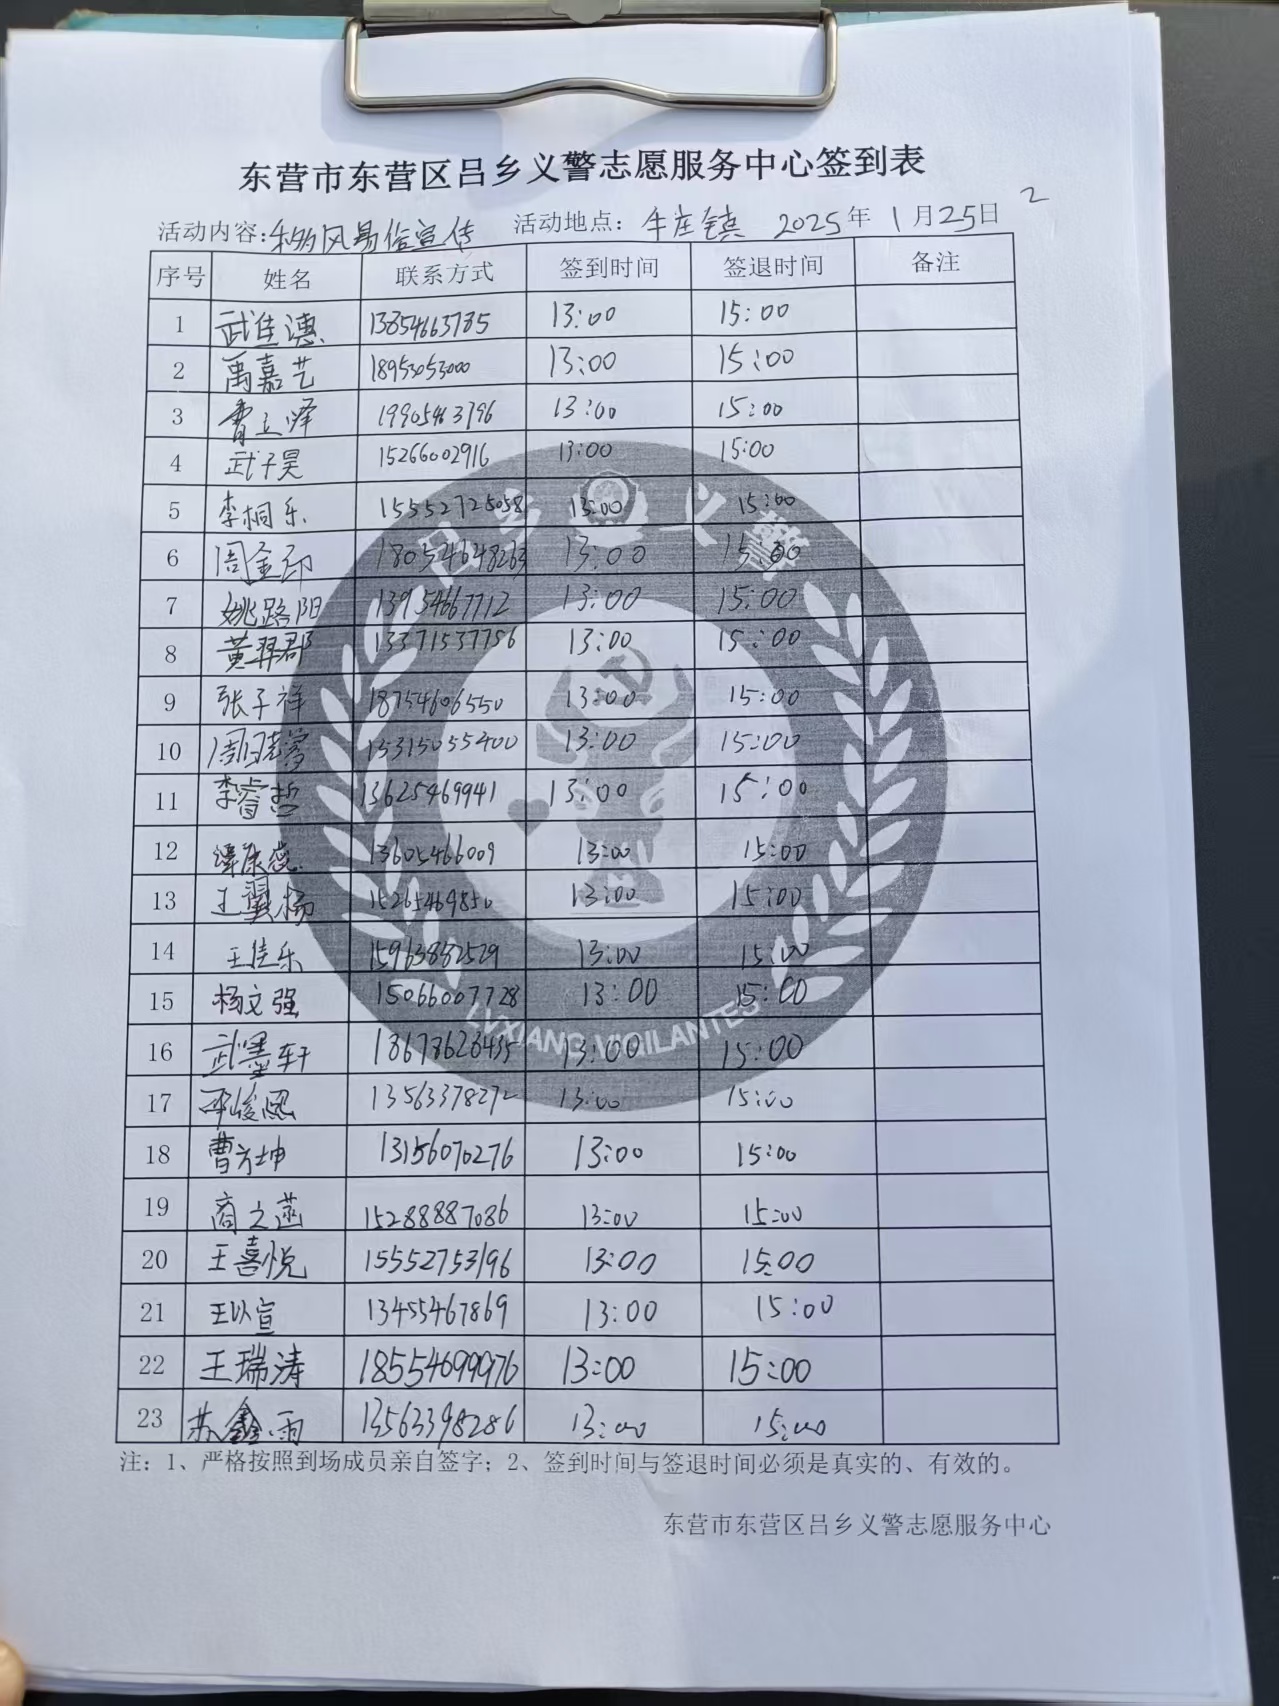 东营市东营区吕乡义警志愿服务中心签到表
2
活动内容:移风易俗宣传 活动地点: 牛庄镇 2025年 1月25日
序号 姓名 联系方式 签到时间 签退时间 备注
1 武佳 13854663785 13:00 15:00
2 禹嘉艺 18953053000 13:00 15:00
3 曹立峰 19905463796 13:00 15:00
4 武子昊 15266002916 13:00 15:00
5 李桐乐 15552725058 13:00 15:00
6 周金 18054648263 13:00 15:00
7 姚路阳 13954667712 13:00 15:00
8 黄羿郡 13371537756 13:00 15:00
9 张子祥 18754606550 13:00 15:00
10 周 15315055400 13:00 15:00
11 李睿哲 13625469941 13:00 15:00
12 13605466009 13:00 15:00
13 王翼杨 15265469850 13:00 15:00
14 王佳乐 15963882529 13:00 15:00
15 杨文强 15066007728 13:00 15:00
16 武墨轩 18678628435 13:00 15:00
17 峻恩 13563378272 13:00 15:00
18 曹方坤 13156070276 13:00 15:00
19 商之菡 15288887086 13:00 15:00
20 王喜悦 15552753196 13:00 15:00
21 王以宣 13455467869 13:00 15:00
22 王瑞涛 18554699976 13:00 15:00
23 苏鑫雨 13563398286 13:00 15:00
吕乡义警
LVXIANG VIGILANTES
注: 1、严格按照到场成员亲自签字; 2、签到时间与签退时间必须是真实的、有效的。
东营市东营区吕乡义警志愿服务中心